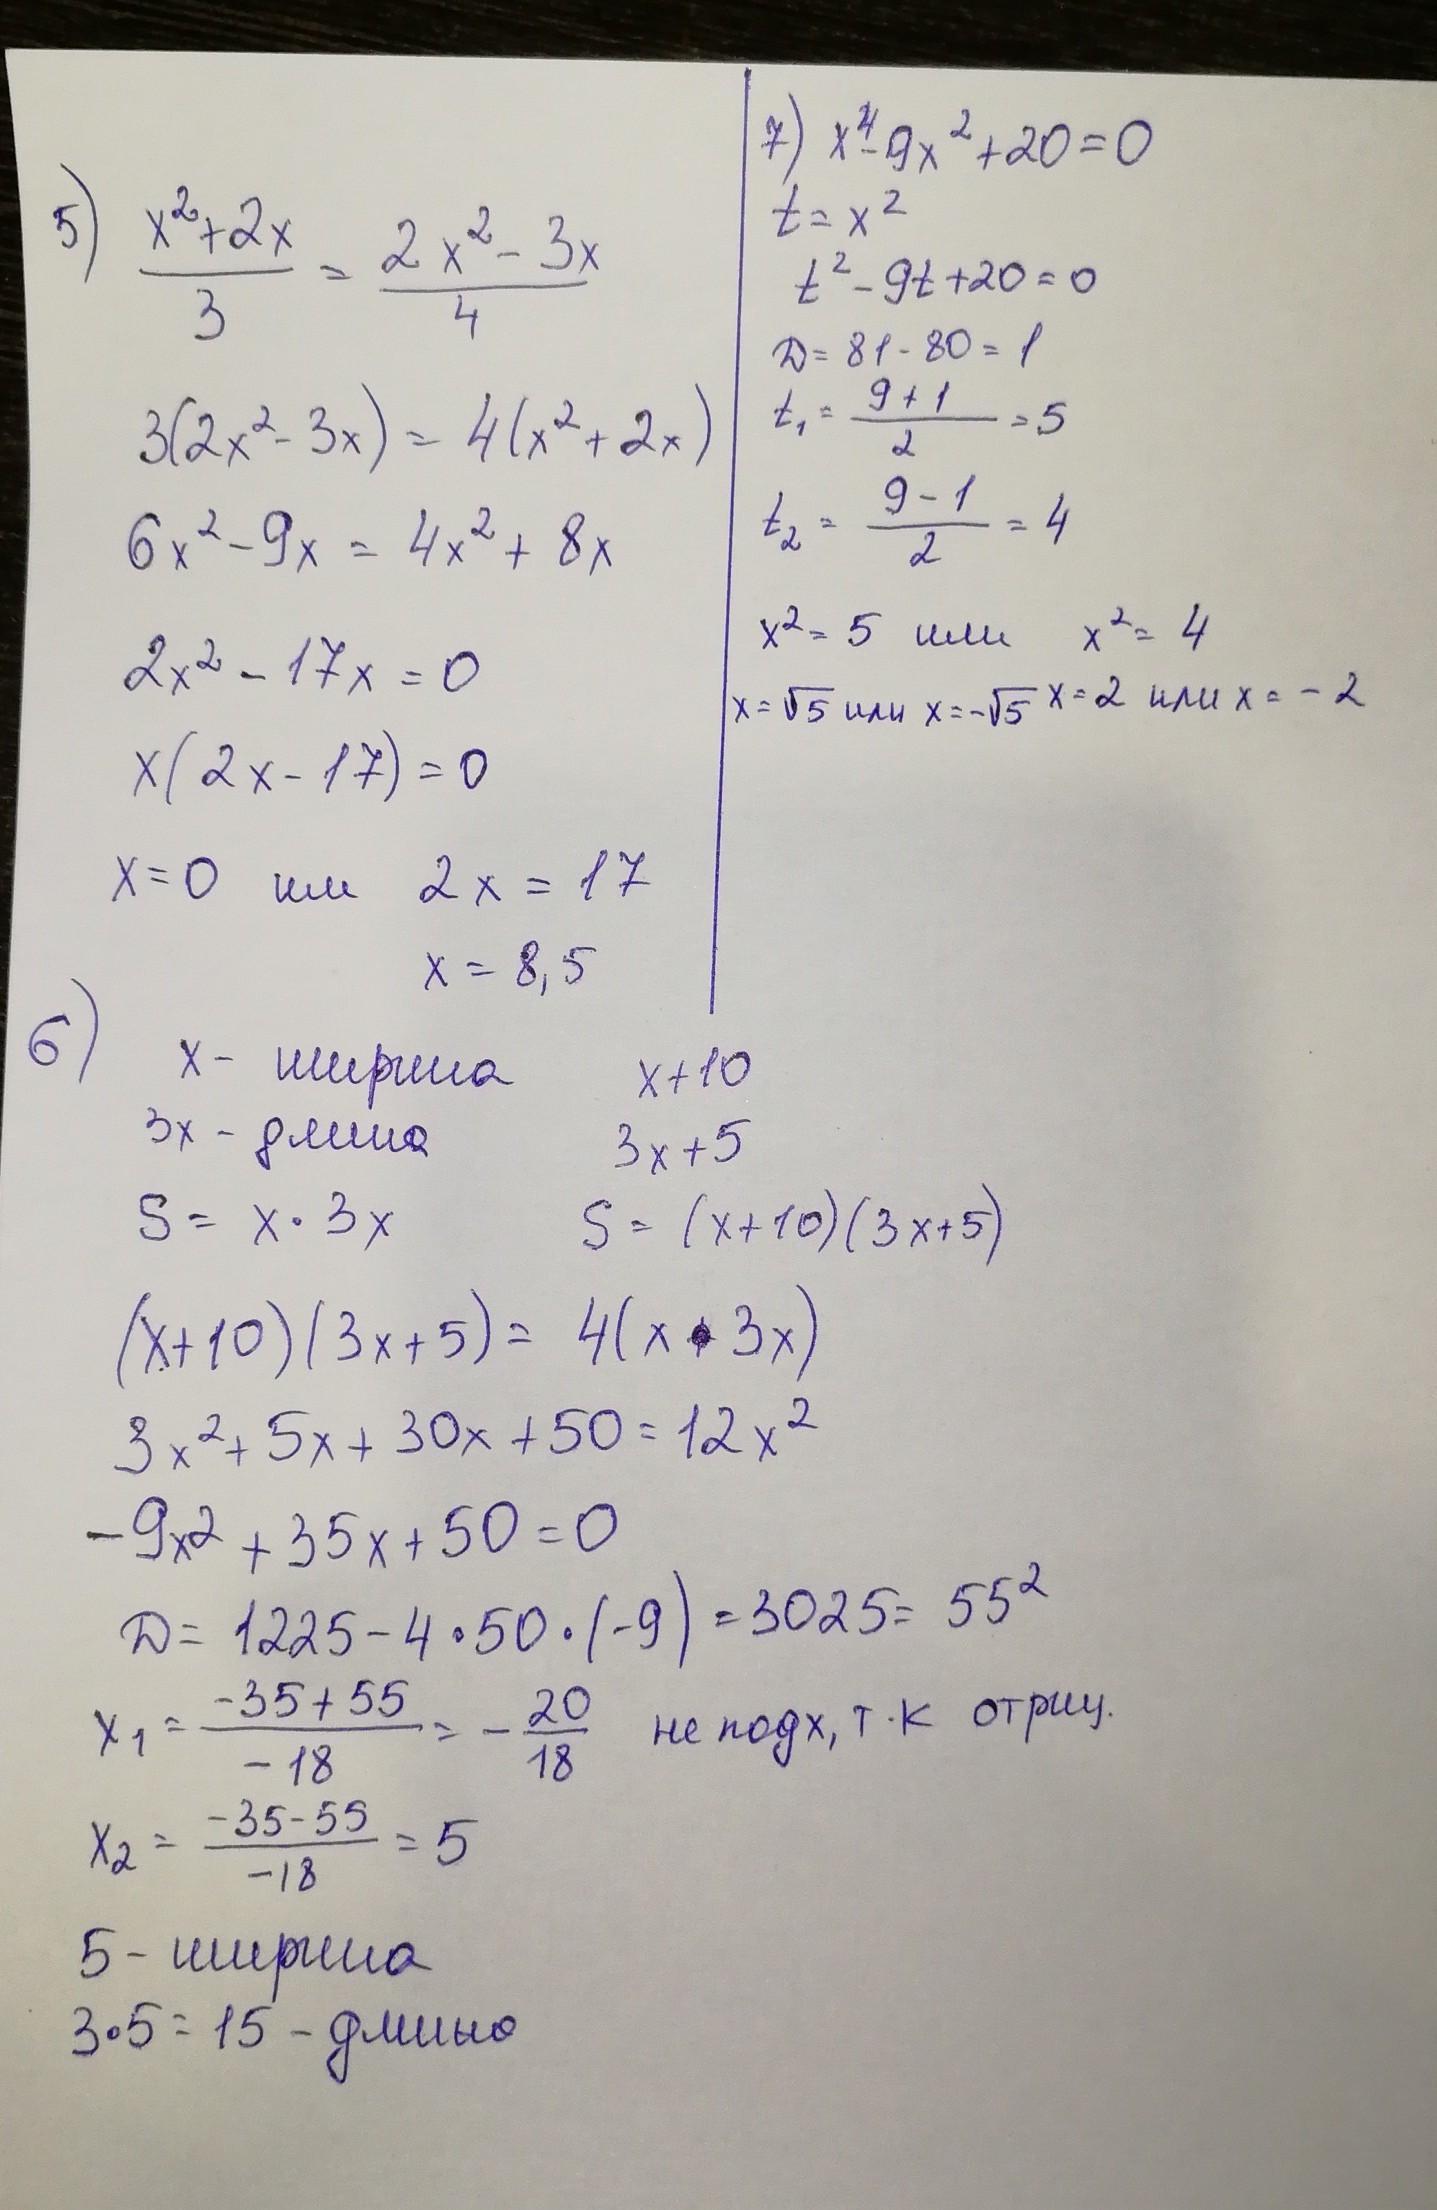 5) x²+2x / 3 = 2x² - 3x / 4
3(2x² - 3x) = 4(x² + 2x)
6x² - 9x = 4x² + 8x
2x² - 17x = 0
x(2x - 17) = 0
x = 0 или 2x = 17
x = 8,5
7) x⁴ - 9x² + 20 = 0
t = x²
t² - 9t + 20 = 0
D = 81 - 80 = 1
t₁ = 9 + 1 / 2 = 5
t₂ = 9 - 1 / 2 = 4
x² = 5 или x² = 4
x = √5 или x = -√5 x = 2 или x = - 2
6) x - ширина x + 10
3x - длина 3x + 5
S = x · 3x S = (x + 10)(3x + 5)
(x + 10)(3x + 5) = 4(x · 3x)
3x² + 5x + 30x + 50 = 12x²
-9x² + 35x + 50 = 0
D = 1225 - 4 · 50 · (-9) = 3025 = 55²
x₁ = -35 + 55 / -18 = - 20 / 18 не подх, т.к отриц.
x₂ = -35 - 55 / -18 = 5
5 - ширина
3 · 5 = 15 - длина